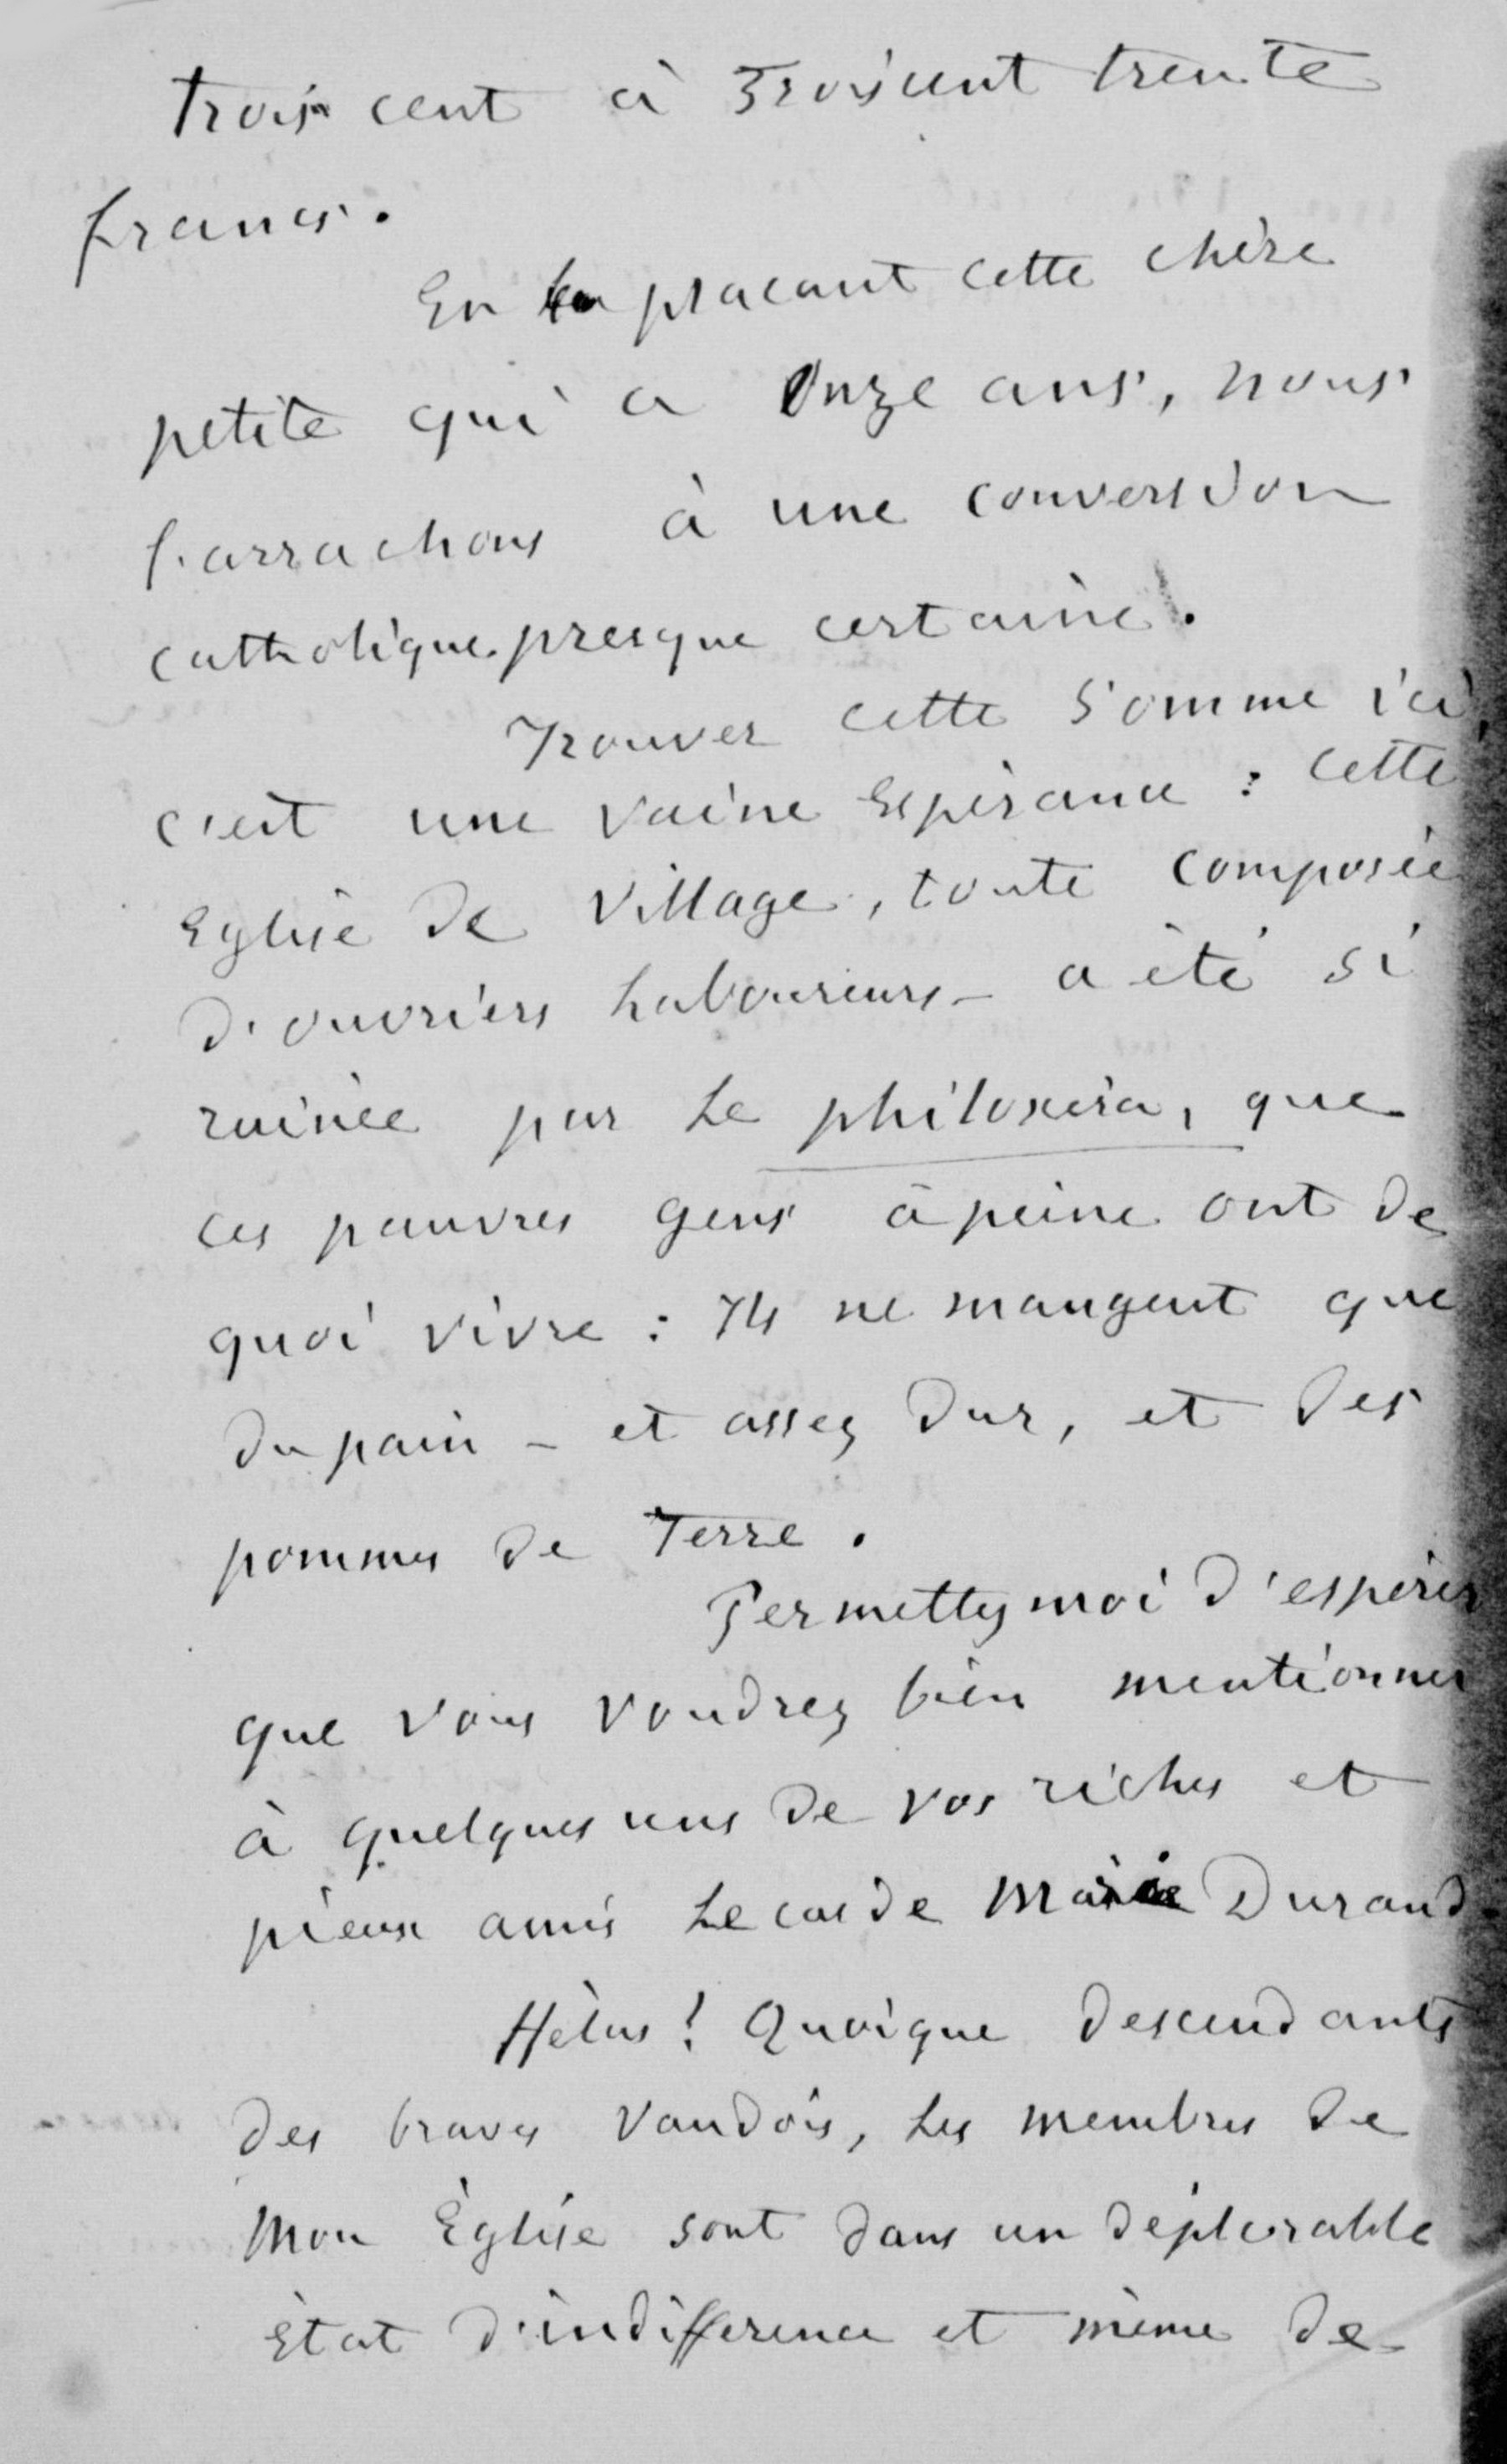 trois cent à Troiscent trente
francs.
En plaçant cette chère
petite qui a Onze ans, nous
l'arrachons à une conversion
catholique presque certaine.
Trouver cette Somme ici,
c'est une vaine Espérance : cette
Eglise de Village, toute composée
d'ouvriers Laboureurs - a été si
ruinée par Le philoxéra, que
ces pauvres gens àpeine ont de
quoi vivre : Ils ne mangent que
du pain - et assez dur, et des
pommes de Terre.
Permettez moi d'espérer
que vous voudrez bien mentionner
à quelques uns de vos riches et
pieux amis Le cas de Marie Durand.
Hélas ! Quoique descendants
des braves Vaudois, Les membres de
Mon Église sont dans un déplorable
État d'indifference et même de